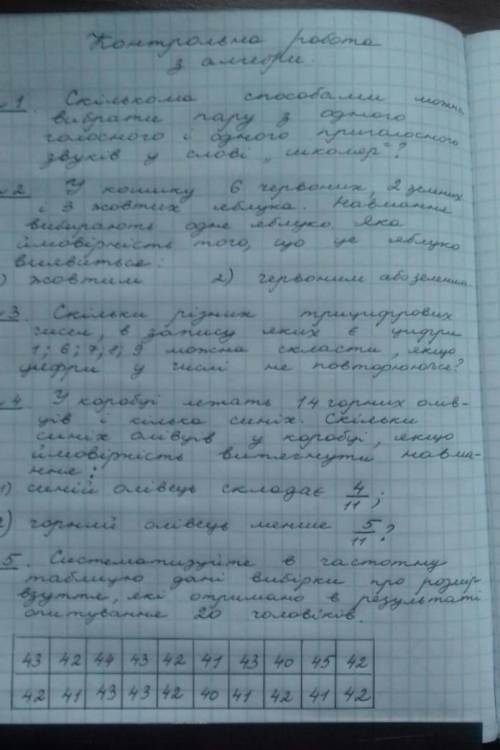 Контрольна робота
з алгебри.
№1. Скількома способами можна
вибрати пару з одного
голосного і одного приголосного
звуків у слові „школяр"?
№2 У кошику 6 червоних, 2 зелених
і 3 жовтих яблука. Навмання
вибирають одне яблуко. Яка
ймовірність того, що це яблуко
виявиться:
1) жовтим 2) червоним або зеленим
№3. Скільки різних трицифрових
чисел, в запису яких є цифри
1; 6; 7; 8; 9 можна скласти, якщо
цифри у числі не повторюються?
№4 У коробці лежать 14 чорних олів-
ців і кілька синіх. Скільки
синіх олівців у коробці, якщо
ймовірність витягнути навма-
ння:
1) синій олівець складає 4/11;
2) чорний олівець менше 5/11?
№5. Систематизуйте в частотну
таблицю дані вибірки про розмір
взуття, які отримано в результаті
опитування 20 чоловіків.
43 42 44 43 42 41 43 40 45 42
42 41 43 43 42 40 41 42 41 42